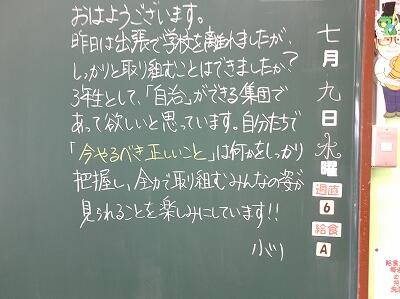 おはようございます。
昨日は出張で学校を離れましたが、
しっかりと取り組むことはできましたか?
3年生として、「自治」ができる集団で
あって欲しいと思っています。自分たちで
「今やるべき正しいこと」は何かをしっかり
把握し、全力で取り組むみんなの姿が
見られることを楽しみにしています!!
小川
七月九日水曜
週直
6
給食
A